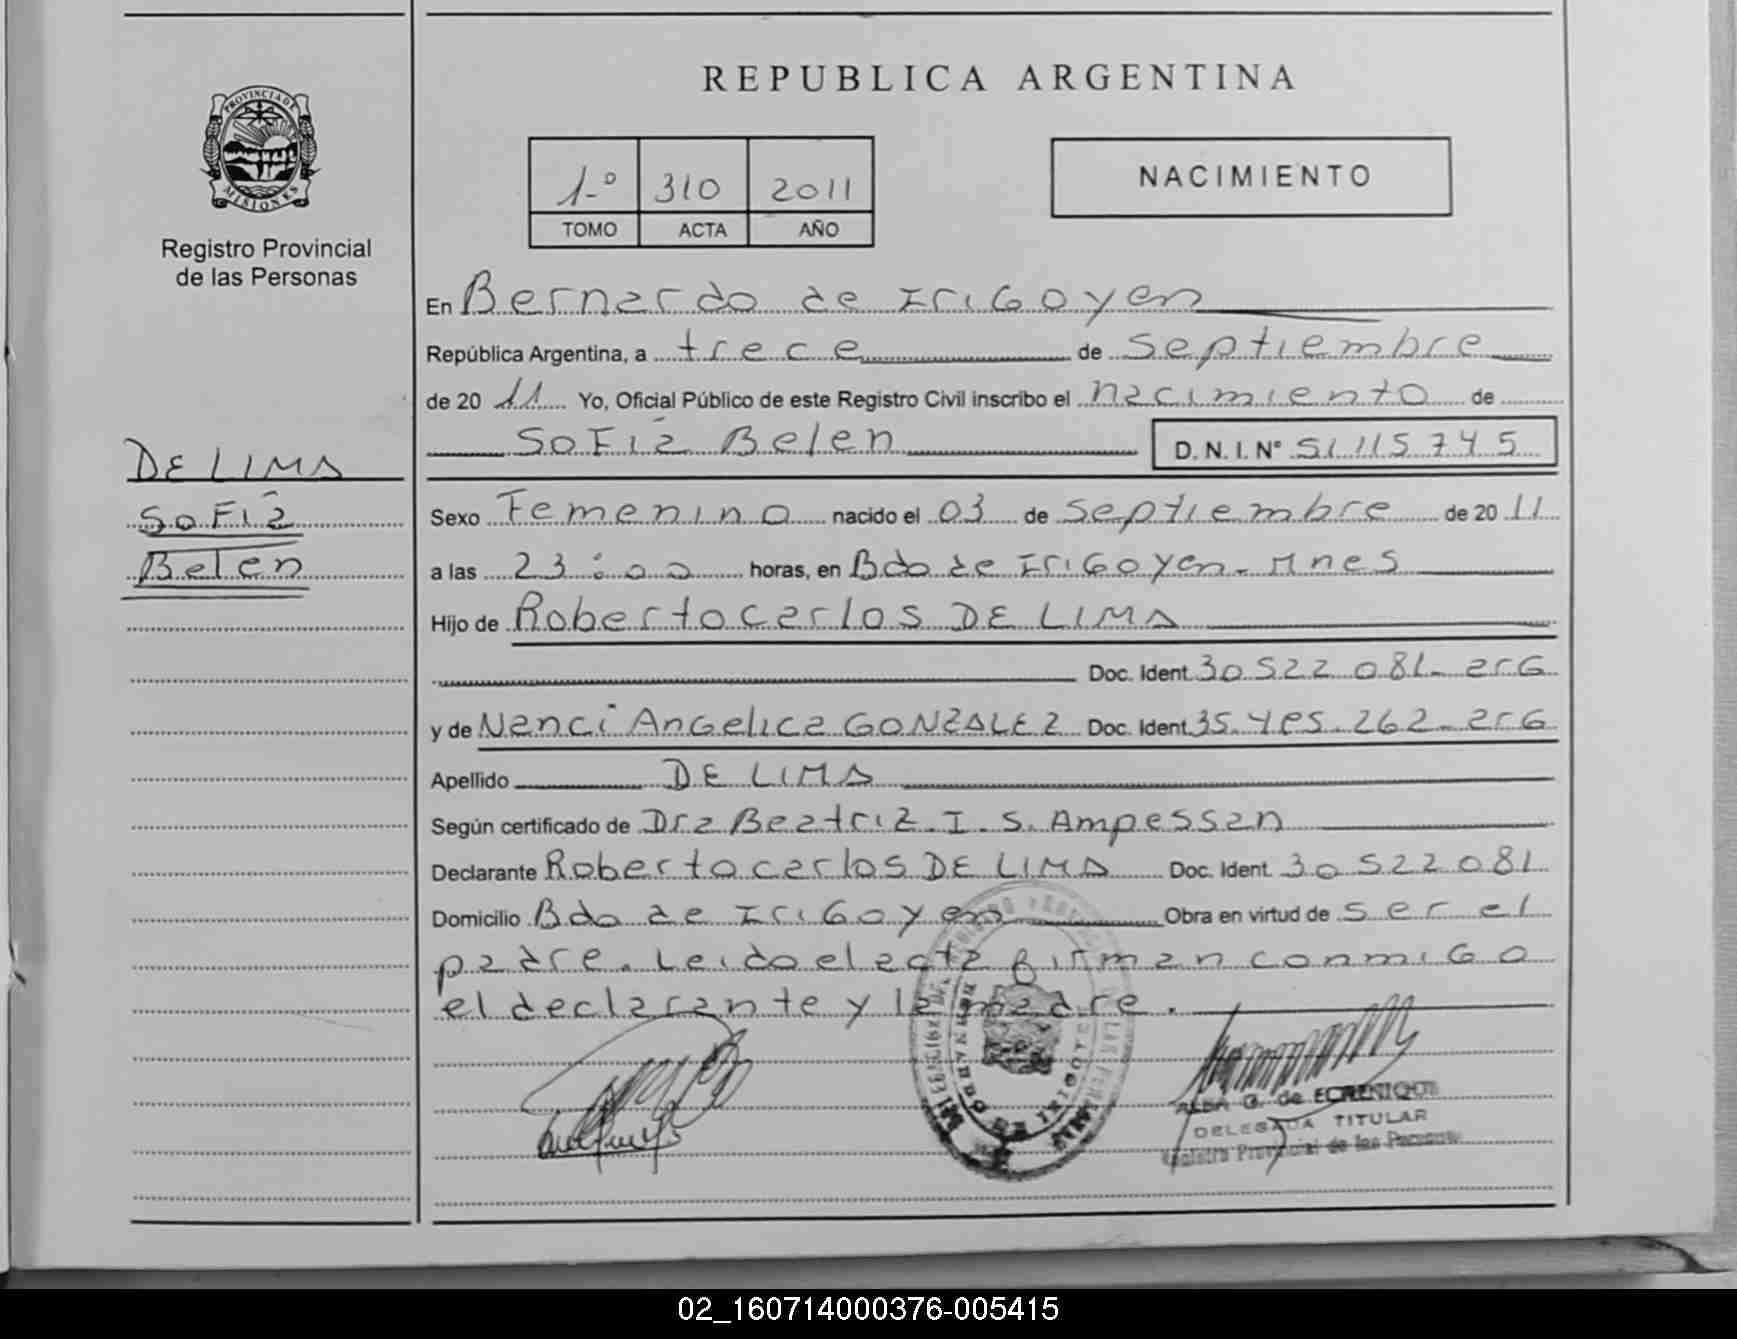 REPUBLICA ARGENTINA
PROVINCIA DE
MISIONES
Registro Provincial
de las Personas
1-º 310 2011
TOMO ACTA AÑO
NACIMIENTO
En Bernardo de Irigoyen
República Argentina, a trece de septiembre
de 20 11 Yo, Oficial Público de este Registro Civil inscribo el nacimiento de
Sofia Belen D. N. I. Nº 51.115.745
DE LIMA
Sofia
Belen
Sexo Femenino nacido el 03 de septiembre de 20 11
a las 23:00 horas, en Bdo de Irigoyen - Mnes
Hijo de Roberto carlos DE LIMA
Doc. Ident. 30522081- arG
y de Nanci Angelica GONZALEZ Doc. Ident. 35. 262- arG
Apellido DE LIMA
Según certificado de Dra Beatriz. I. S. Ampessan
Declarante Roberto carlos DE LIMA Doc. Ident. 30522081
Domicilio Bdo de Irigoyen Obra en virtud de ser el
padre. Leida el acta firman conmigo
el declarante y la madre.
ALBA G. de
DELEGADA TITULAR
Registro Provincial de las Personas
02_160714000376-005415